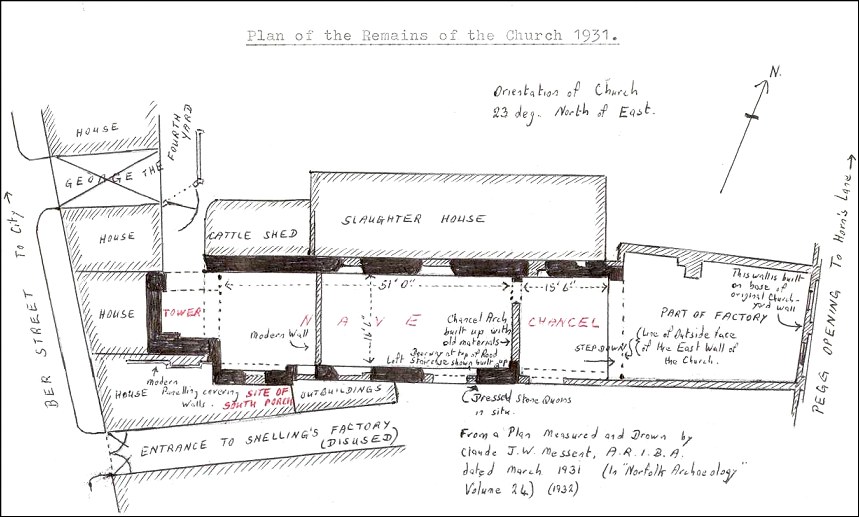 Plan of the Remains of the Church 1931.
Orientation of Church
23 deg. North of East.
N.
HOUSE
FOURTH
YARD
GEORGE THE
HOUSE
CATTLE SHED
SLAUGHTER HOUSE
To City →
BER STREET
HOUSE
TOWER
51' 0"
15' 6"
NAVE
16' 6"
CHANCEL
Modern
Wall
Chancel Arch
built up with
old materials →
Doorway at top of Rood
Loft Staircase shown built up
STEP DOWN
PART OF FACTORY
(Line of Outside face
of the East Wall of
the Church.
This wall is built
on base of
original Church-
yard wall
PEGG OPENING To Horn's Lane →
HOUSE
Modern
Panelling covering
Walls.
SITE OF
SOUTH PORCH
OUTBUILDINGS
Dressed Stone Quoins
in situ.
ENTRANCE TO SNELLING'S FACTORY
(DISUSED)
From a Plan Measured and Drawn by
Claude J.W. Messent, A.R.I.B.A.
dated March 1931 (In "Norfolk Archaeology"
Volume 24) (1932)